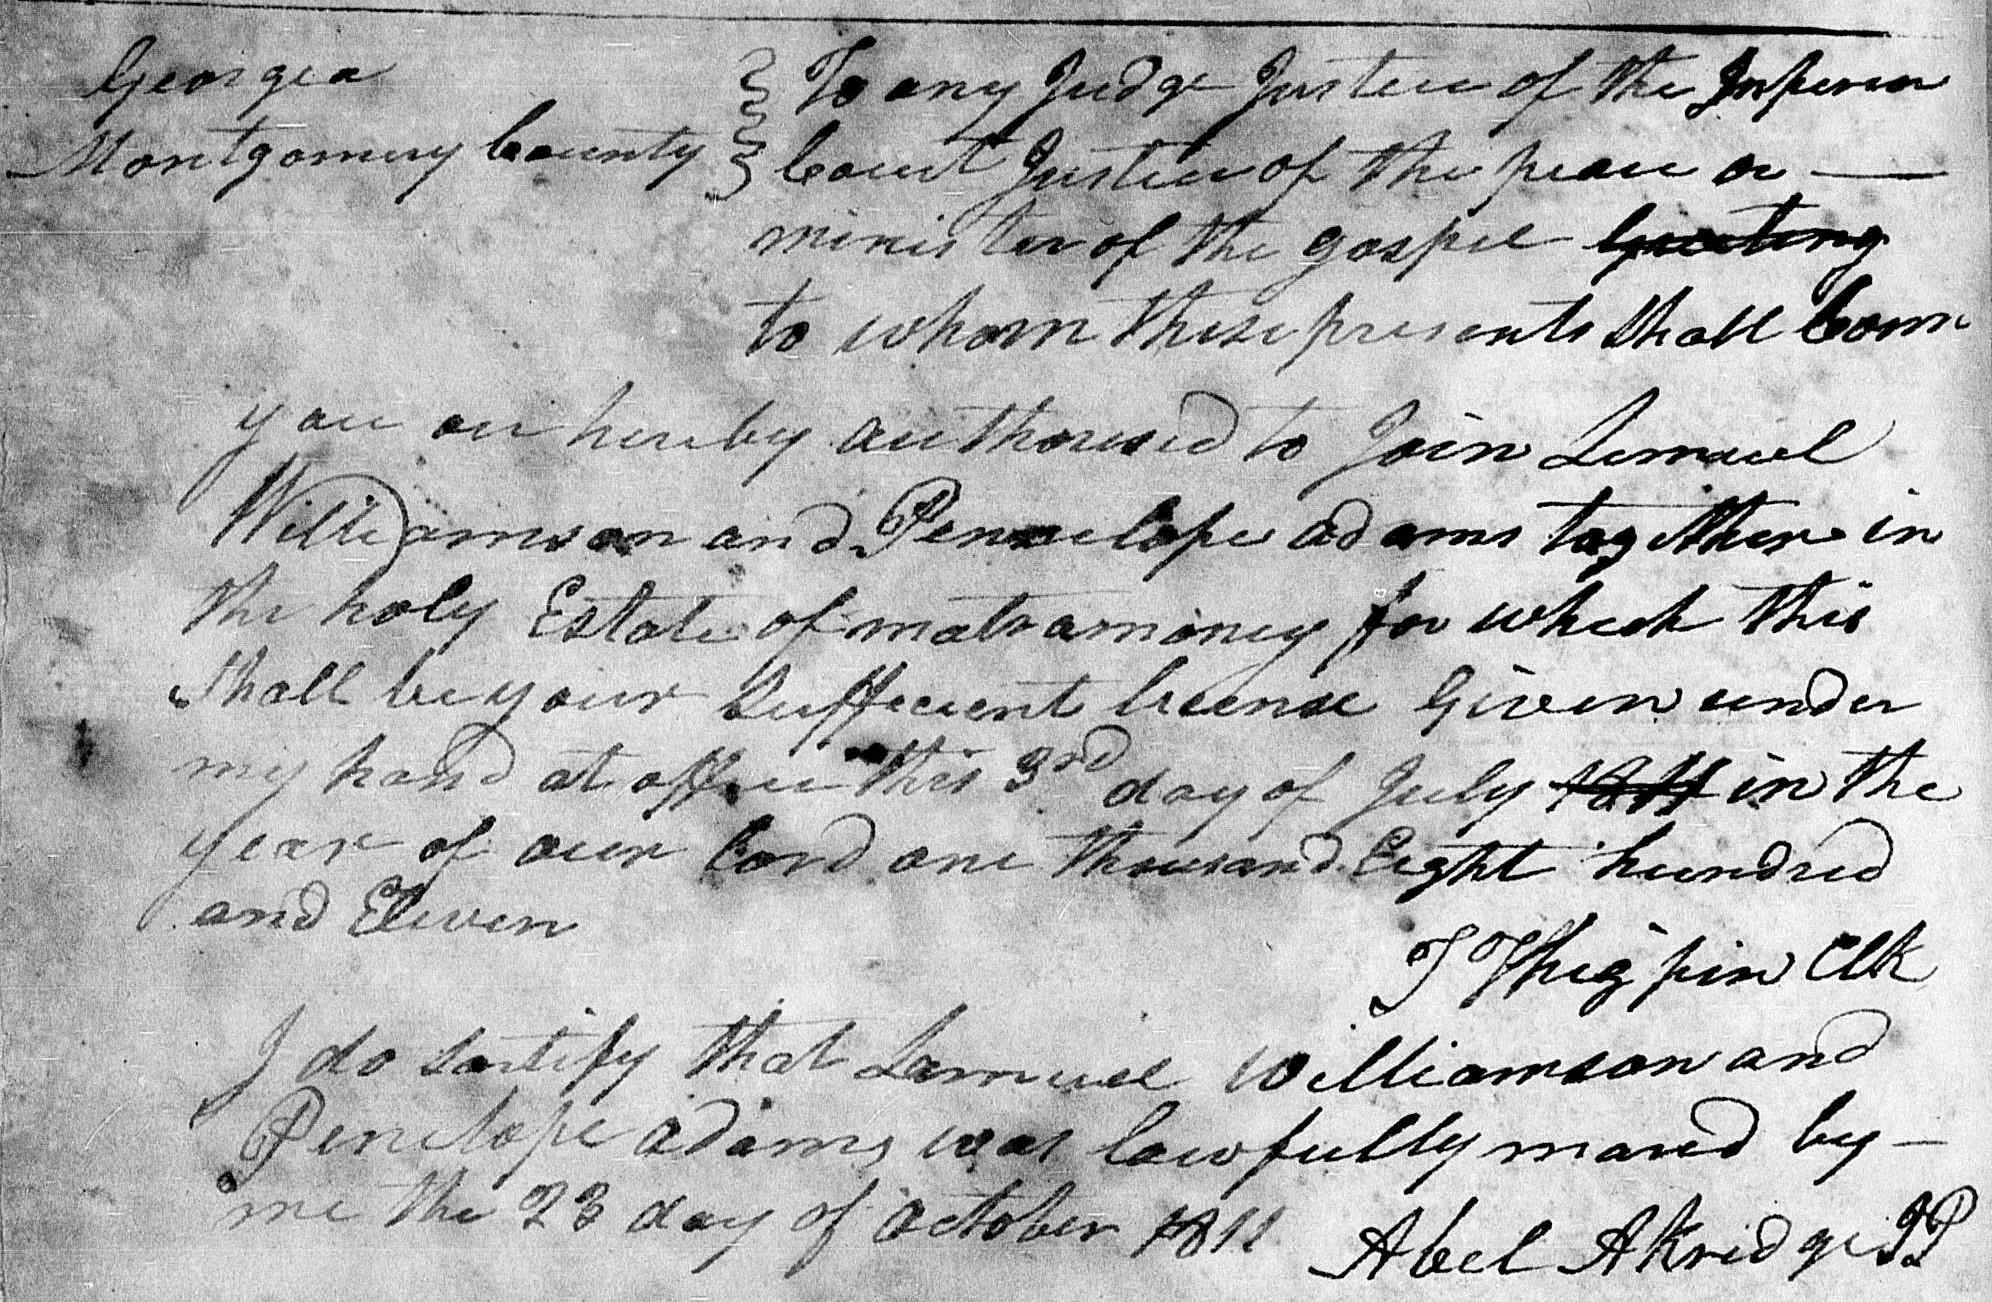 Georgia } To any Judge Justice of the Inferior
Montgomery County } Court Justice of the peace or —
minister of the gospel Greeting
to whom these presents shall Come
you are hereby authorised to Join Lemuel
Williamson and Penelope adams together in
the holy Estate of matramoney for which this
shall be your Sufficient licence Given under
my hand at office this 3rd day of July 1811 in the
year of our Lord one thousand Eight hundred
and Eleven
T Thigpin Clk
I do Sartify that Lamuel Williamson and
Penelope adams was lawfully mared by —
me the 23 day of October 1811 Abel Akridge JP